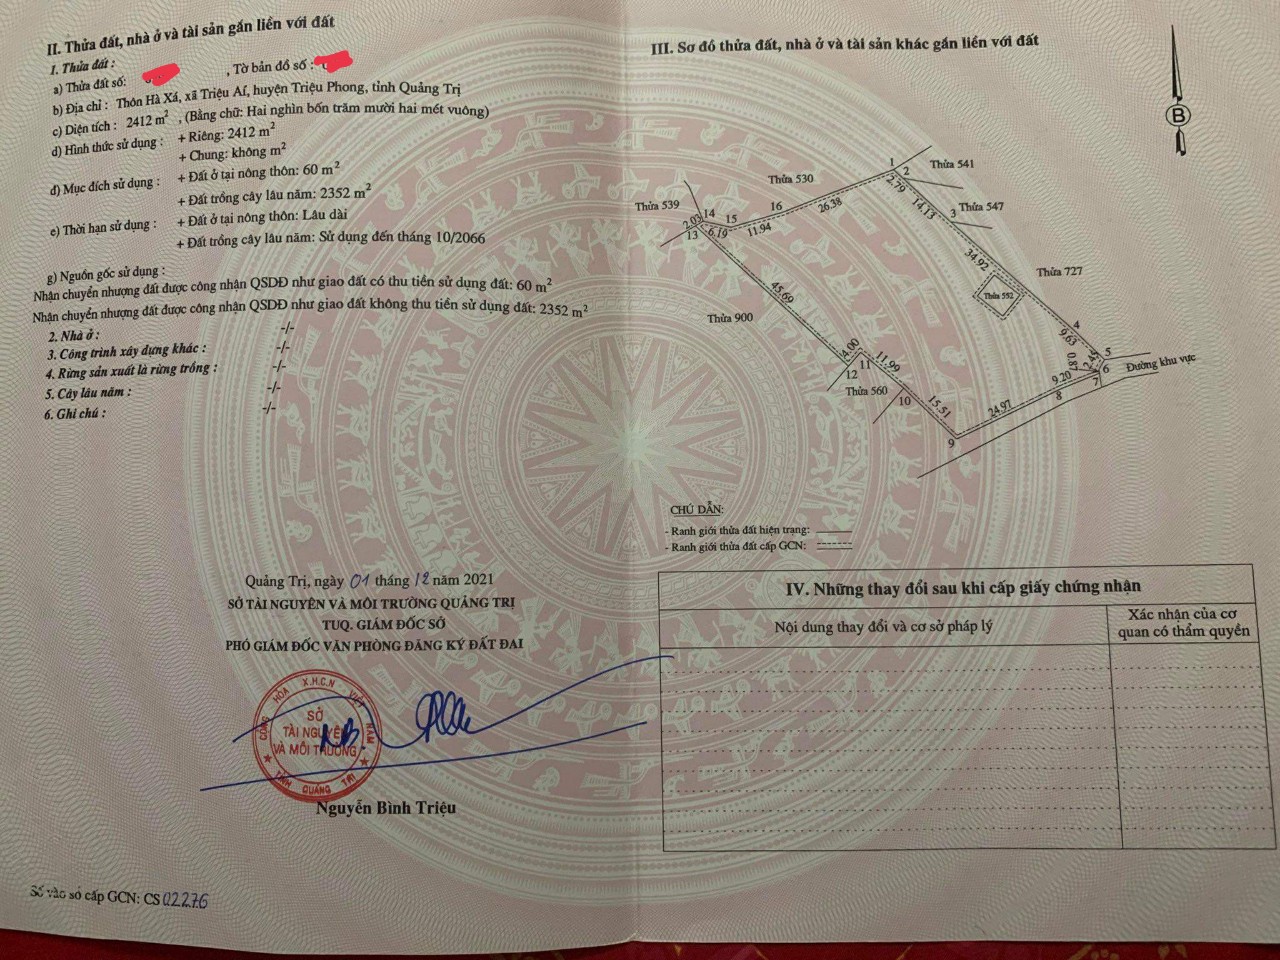 II. Thửa đất, nhà ở và tài sản gắn liền với đất
1. Thửa đất :
a) Thửa đất số: , Tờ bản đồ số :
b) Địa chỉ : Thôn Hà Xá, xã Triệu Aí, huyện Triệu Phong, tỉnh Quảng Trị
c) Diện tích : 2412 m², (Bằng chữ: Hai nghìn bốn trăm mười hai mét vuông)
d) Hình thức sử dụng : + Riêng: 2412 m²
+ Chung: không m²
đ) Mục đích sử dụng : + Đất ở tại nông thôn: 60 m²
+ Đất trồng cây lâu năm: 2352 m²
e) Thời hạn sử dụng : + Đất ở tại nông thôn: Lâu dài
+ Đất trồng cây lâu năm: Sử dụng đến tháng 10/2066
g) Nguồn gốc sử dụng :
Nhận chuyển nhượng đất được công nhận QSDĐ như giao đất có thu tiền sử dụng đất: 60 m²
Nhận chuyển nhượng đất được công nhận QSDĐ như giao đất không thu tiền sử dụng đất: 2352 m²
2. Nhà ở : -/-
3. Công trình xây dựng khác : -/-
4. Rừng sản xuất là rừng trồng : -/-
5. Cây lâu năm : -/-
6. Ghi chú : -/-
Quảng Trị, ngày 01 tháng 12 năm 2021
SỞ TÀI NGUYÊN VÀ MÔI TRƯỜNG QUẢNG TRỊ
TUQ. GIÁM ĐỐC SỞ
PHÓ GIÁM ĐỐC VĂN PHÒNG ĐĂNG KÝ ĐẤT ĐAI
CỘNG HÒA X.H.C.N VIỆT NAM
SỞ
TÀI NGUYÊN
VÀ MÔI TRƯỜNG
TỈNH QUẢNG TRỊ
Nguyễn Bình Triệu
Số vào sổ cấp GCN: CS 02276
III. Sơ đồ thửa đất, nhà ở và tài sản khác gắn liền với đất
B
Thửa 530
1
2
Thửa 541
2.79
Thửa 539
14
2.03
13
6.19
15
11.94
16
26.38
14.13
3
Thửa 547
34.92
Thửa 727
Thửa 552
45.69
Thửa 900
4
9.63
5
2.45
0.87
6
7
Đường khu vực
4.00
11
12
11.99
Thửa 560
10
15.51
9
24.97
9.20
8
CHÚ DẪN:
- Ranh giới thửa đất hiện trạng:
- Ranh giới thửa đất cấp GCN:
IV. Những thay đổi sau khi cấp giấy chứng nhận
Nội dung thay đổi và cơ sở pháp lý
Xác nhận của cơ
quan có thẩm quyền